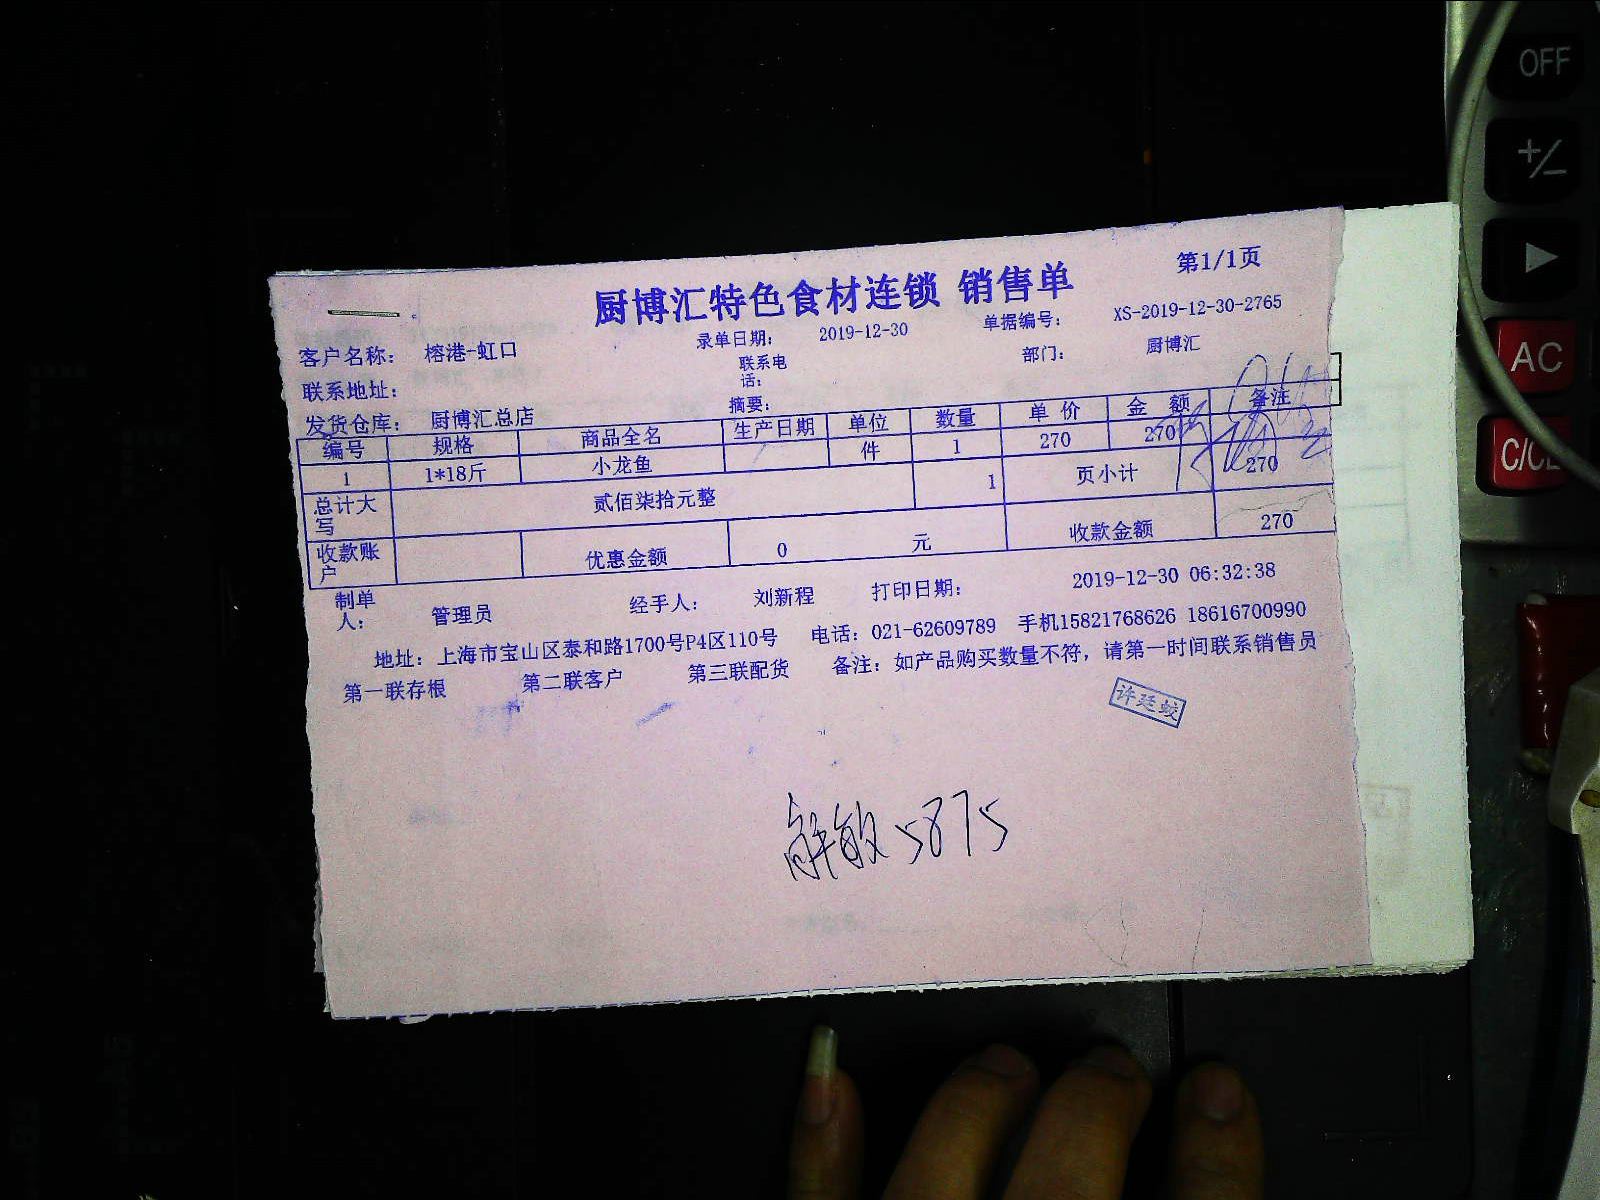 第1/1页
厨博汇特色食材连锁 销售单
客户名称： 榕港-虹口 录单日期： 2019-12-30 单据编号： XS-2019-12-30-2765
联系地址： 联系电话： 部门： 厨博汇
发货仓库： 厨博汇总店 摘要：
编号 规格 商品全名 生产日期 单位 数量 单价 金额 备注
1 1*18斤 小龙鱼 件 1 270 270
总计大写 贰佰柒拾元整 1 页小计 270
收款账户 优惠金额 0 元 收款金额 270
制单人： 管理员 经手人： 刘新程 打印日期： 2019-12-30 06:32:38
地址：上海市宝山区泰和路1700号P4区110号 电话：021-62609789 手机15821768626 18616700990
第一联存根 第二联客户 第三联配货 备注：如产品购买数量不符，请第一时间联系销售员
许廷蛟
解敏 5875
OFF
+/-
▶
AC